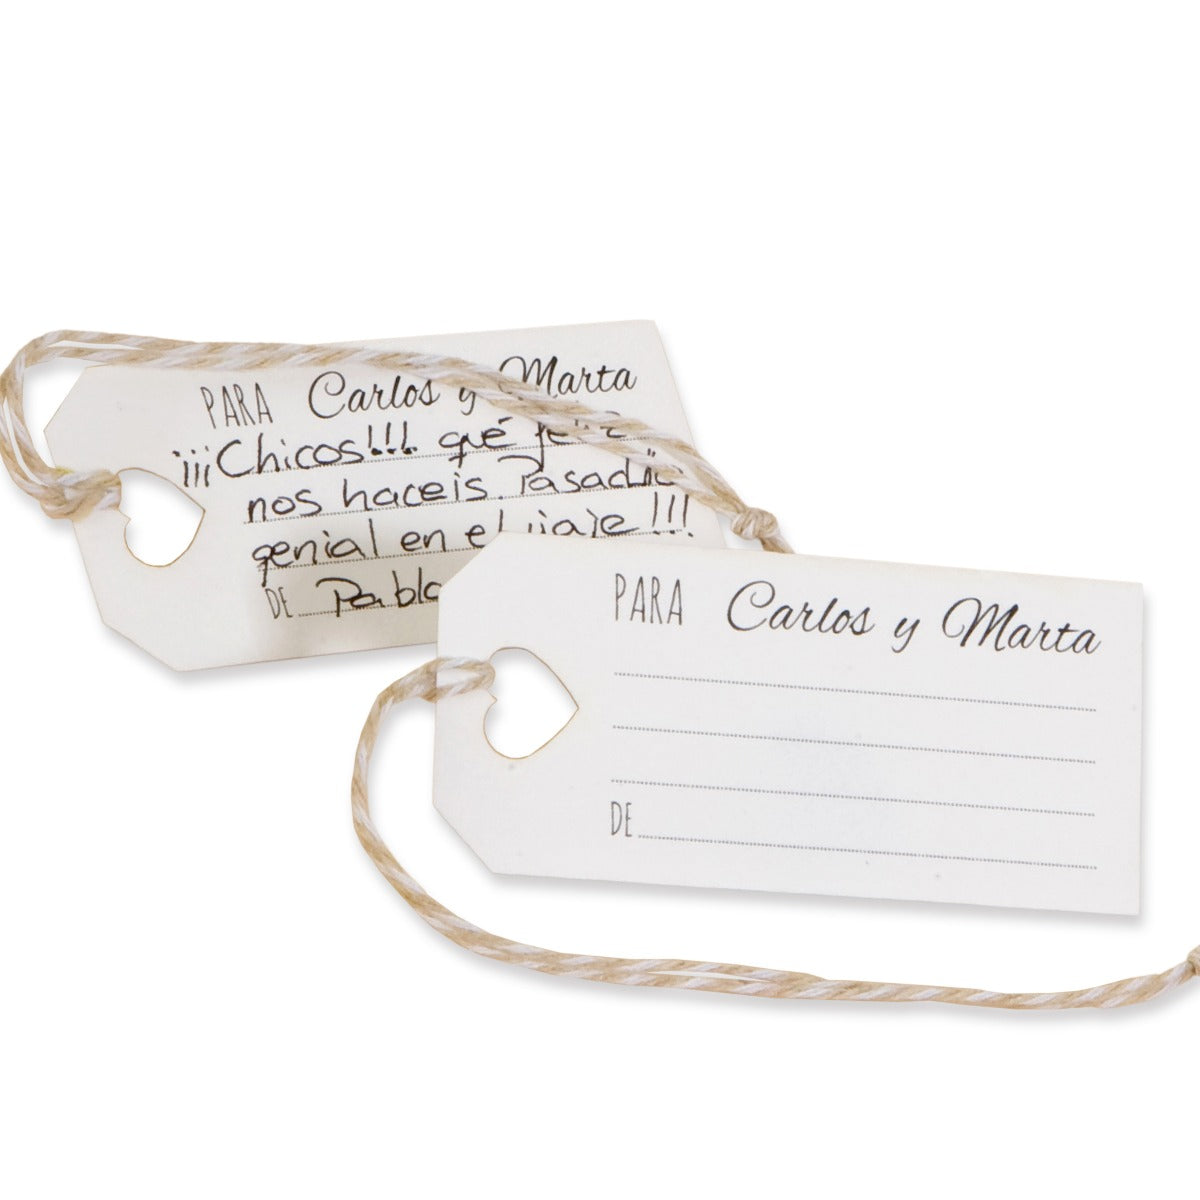 PARA Carlos y Marta
¡¡¡Chicos!!! qué feliz
nos haceis. Pasadlo
genial en el viaje!!!
DE Pablo
PARA Carlos y Marta
DE